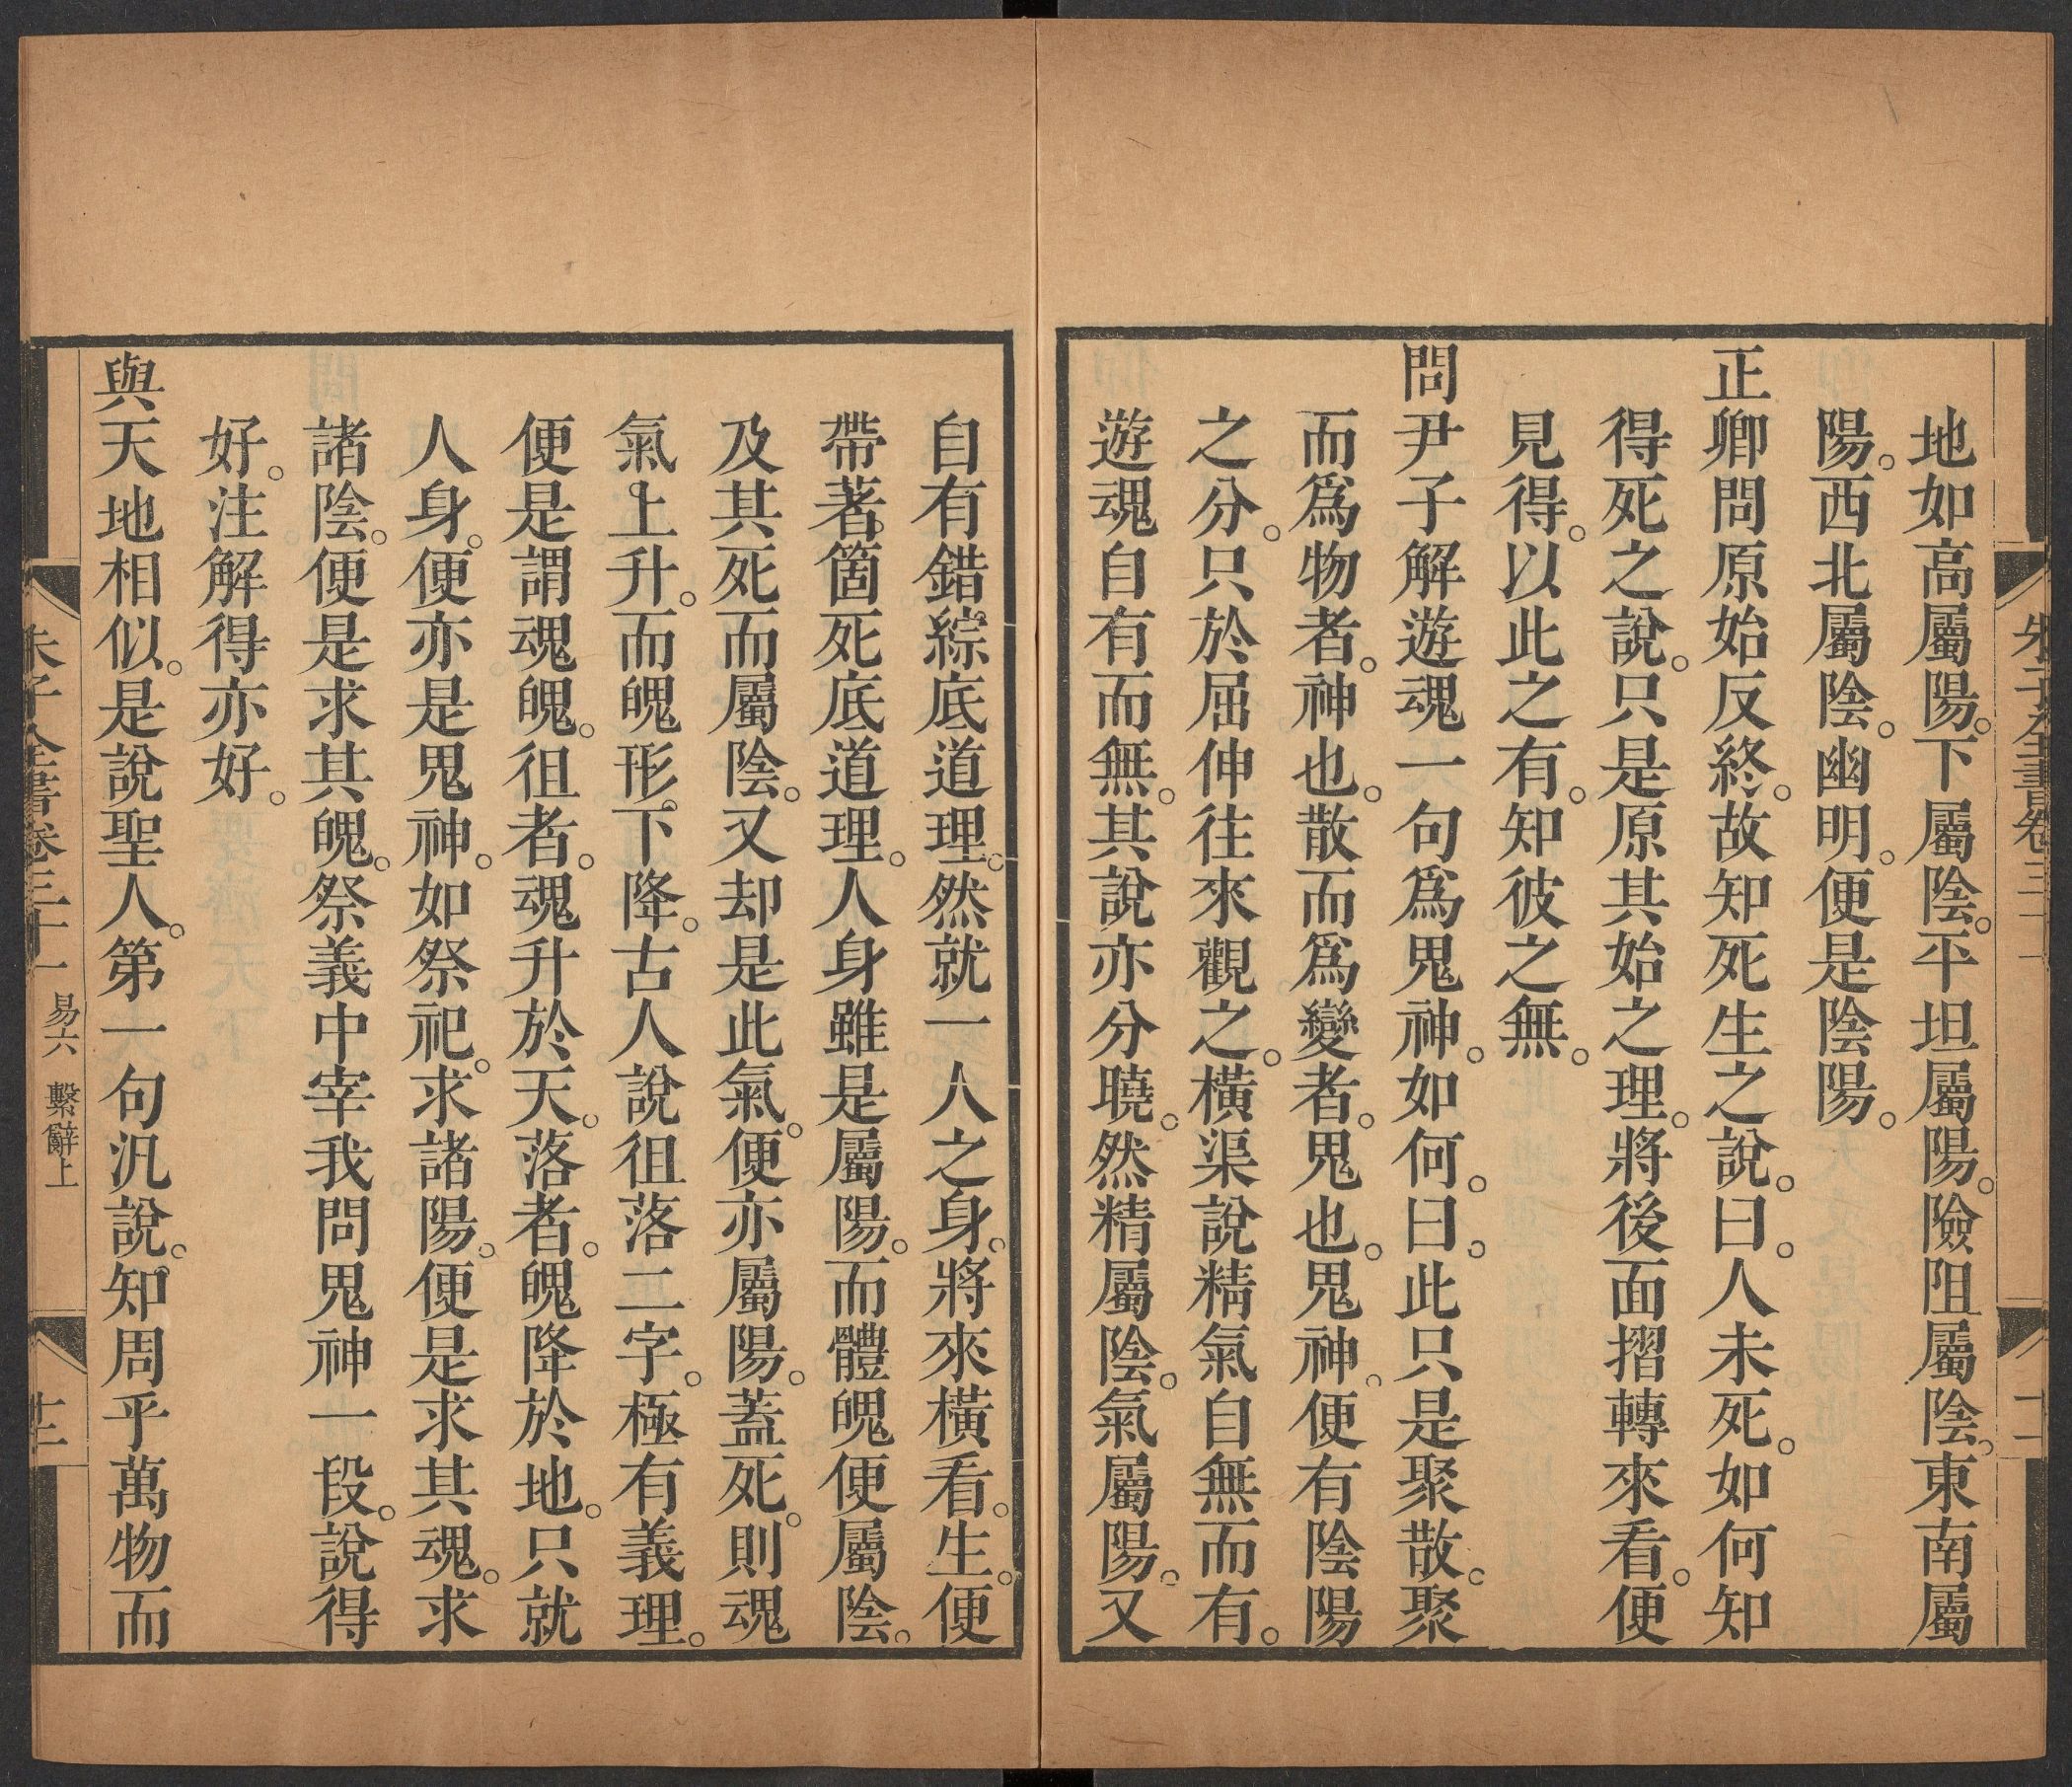 朱子全書卷三十一
地如高屬陽。下屬陰。平坦屬陽。險阻屬陰。東南屬
陽。西北屬陰。幽明。便是陰陽。
正卿問原始反終。故知死生之說。曰。人未死。如何知
得死之說。只是原其始之理。將後面摺轉來看。便
見得。以此之有。知彼之無。
問尹子解遊魂一句爲鬼神。如何。曰。此只是聚散。聚
而爲物者。神也。散而爲變者。鬼也。鬼神。便有陰陽
之分。只於屈伸往來觀之。橫渠說精氣自無而有。
遊魂自有而無。其說亦分曉。然精屬陰。氣屬陽。又
自有錯綜底道理。然就一人之身。將來橫看。生。便
帶著。箇死底道理。人身雖是屬陽。而體魄便屬陰。
及其死而屬陰。又却是此氣。便亦屬陽。蓋死。則魂
氣。上升。而魄形。下降。古人說徂落二字。極有義理。
便是謂魂魄。徂者。魂升於天。落者。魄降於地。只就
人身。便亦是鬼神。如祭祀。求諸陽。便是求其魂。求
諸陰。便是求其魄。祭義中宰我問鬼神一段。說得
好。注解得亦好。
與天地相似。是說聖人。第一句汎說。知周乎萬物而
朱子全書卷三十一 易六 繫辭上